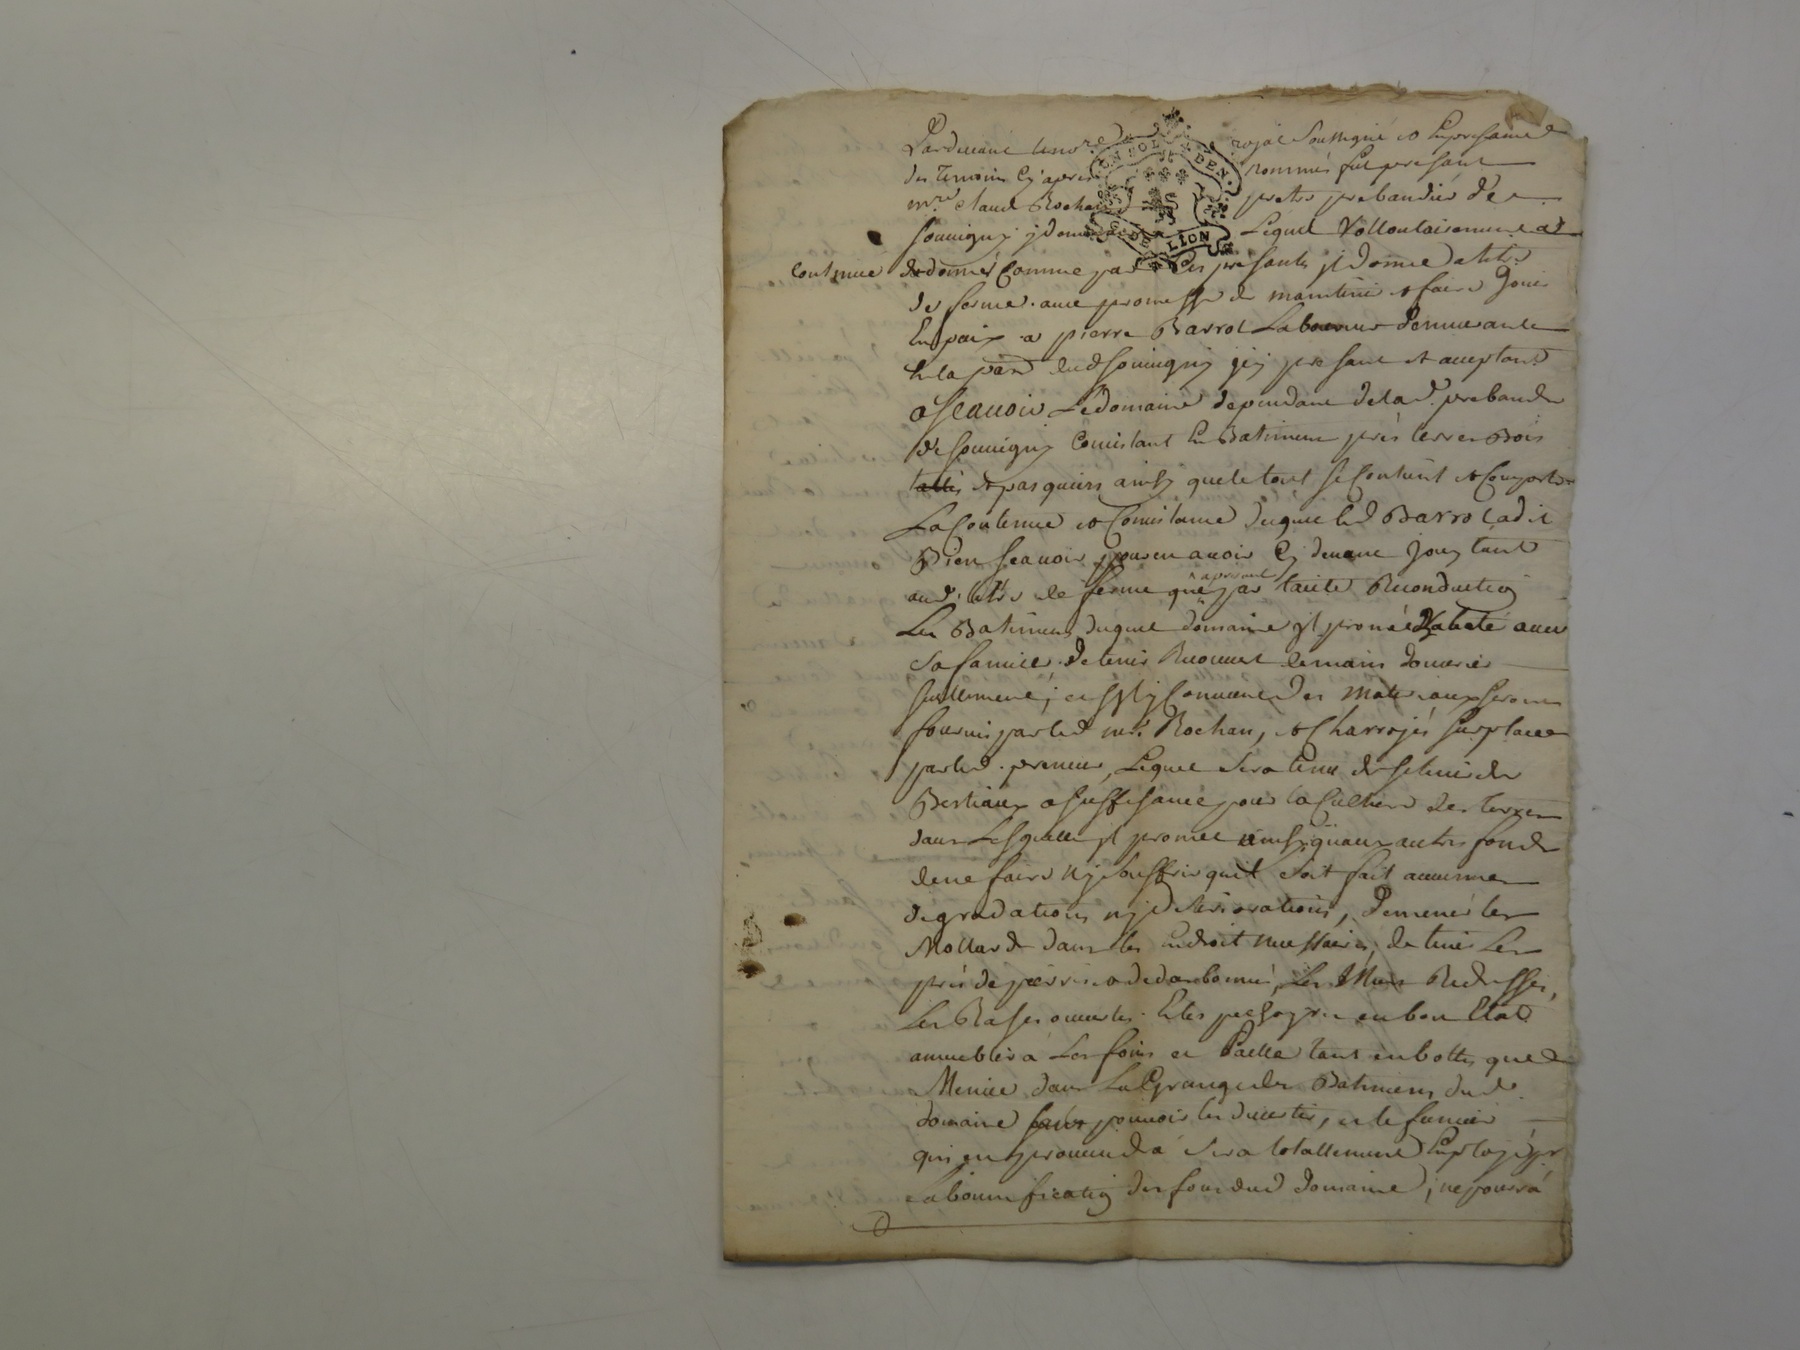 Pardevant le no.re royal soussigné et En presance
des temoins Cy apres nommés fut presant
m.re claude Rochan pretre prebandier de
souvigny y demeurant Lequel Vollontairement a
continué & donné comme par Ces presantes jl donne a titre
de ferme avec promesse de maintenir & faire Jouir
En paix a pierre Barrot Laboureur demeurant
En la par. dud souvigny jcy presant & acceptant
a scavoir Le domaine dependant de lad. prebande
de souvigny Consistant En Batiment prés terres Bois
& pasquiers ainsy que le tout se Contient & Comporte
La Contenue et Consistance duquel led Barrot a dit
Bien scavoir pour en avoir Cy devant Jouy tant
aud. titre de ferme que par tacite Reconduction
a present
Les Batiments duquel domaine jl promet d'habiter avec
sa famille de tenir Recouvert de main d'ouvrier
seullement, et les materiaux seront
fournis par led m.re Rochan, & Charroyés sur place
par led. preneur, Lequel sera tenu de se tenir des
Bestiaux a suffisance pour la Culture des terres
dans Lesquelles jl promet ainsy qu'aux autres fonds
de ne faire ny souffrir quil soit fait aucunes
degradations ny deteriorations, de mener les
Mollards dans les Endroit necessaires, de tenir Les
prés Les Murs Redressés,
Les Rases ouvertes en bon Etat
Les foins et Paille tant en bottes que
Menue dans La Grange des Batiments dud.
domaine sans pouvoir les divertir, et le fumier
qui en proviendra sera totallement Employé pr
La bonnification des fonds dud domaine, ne pourra
DEN. DE LION